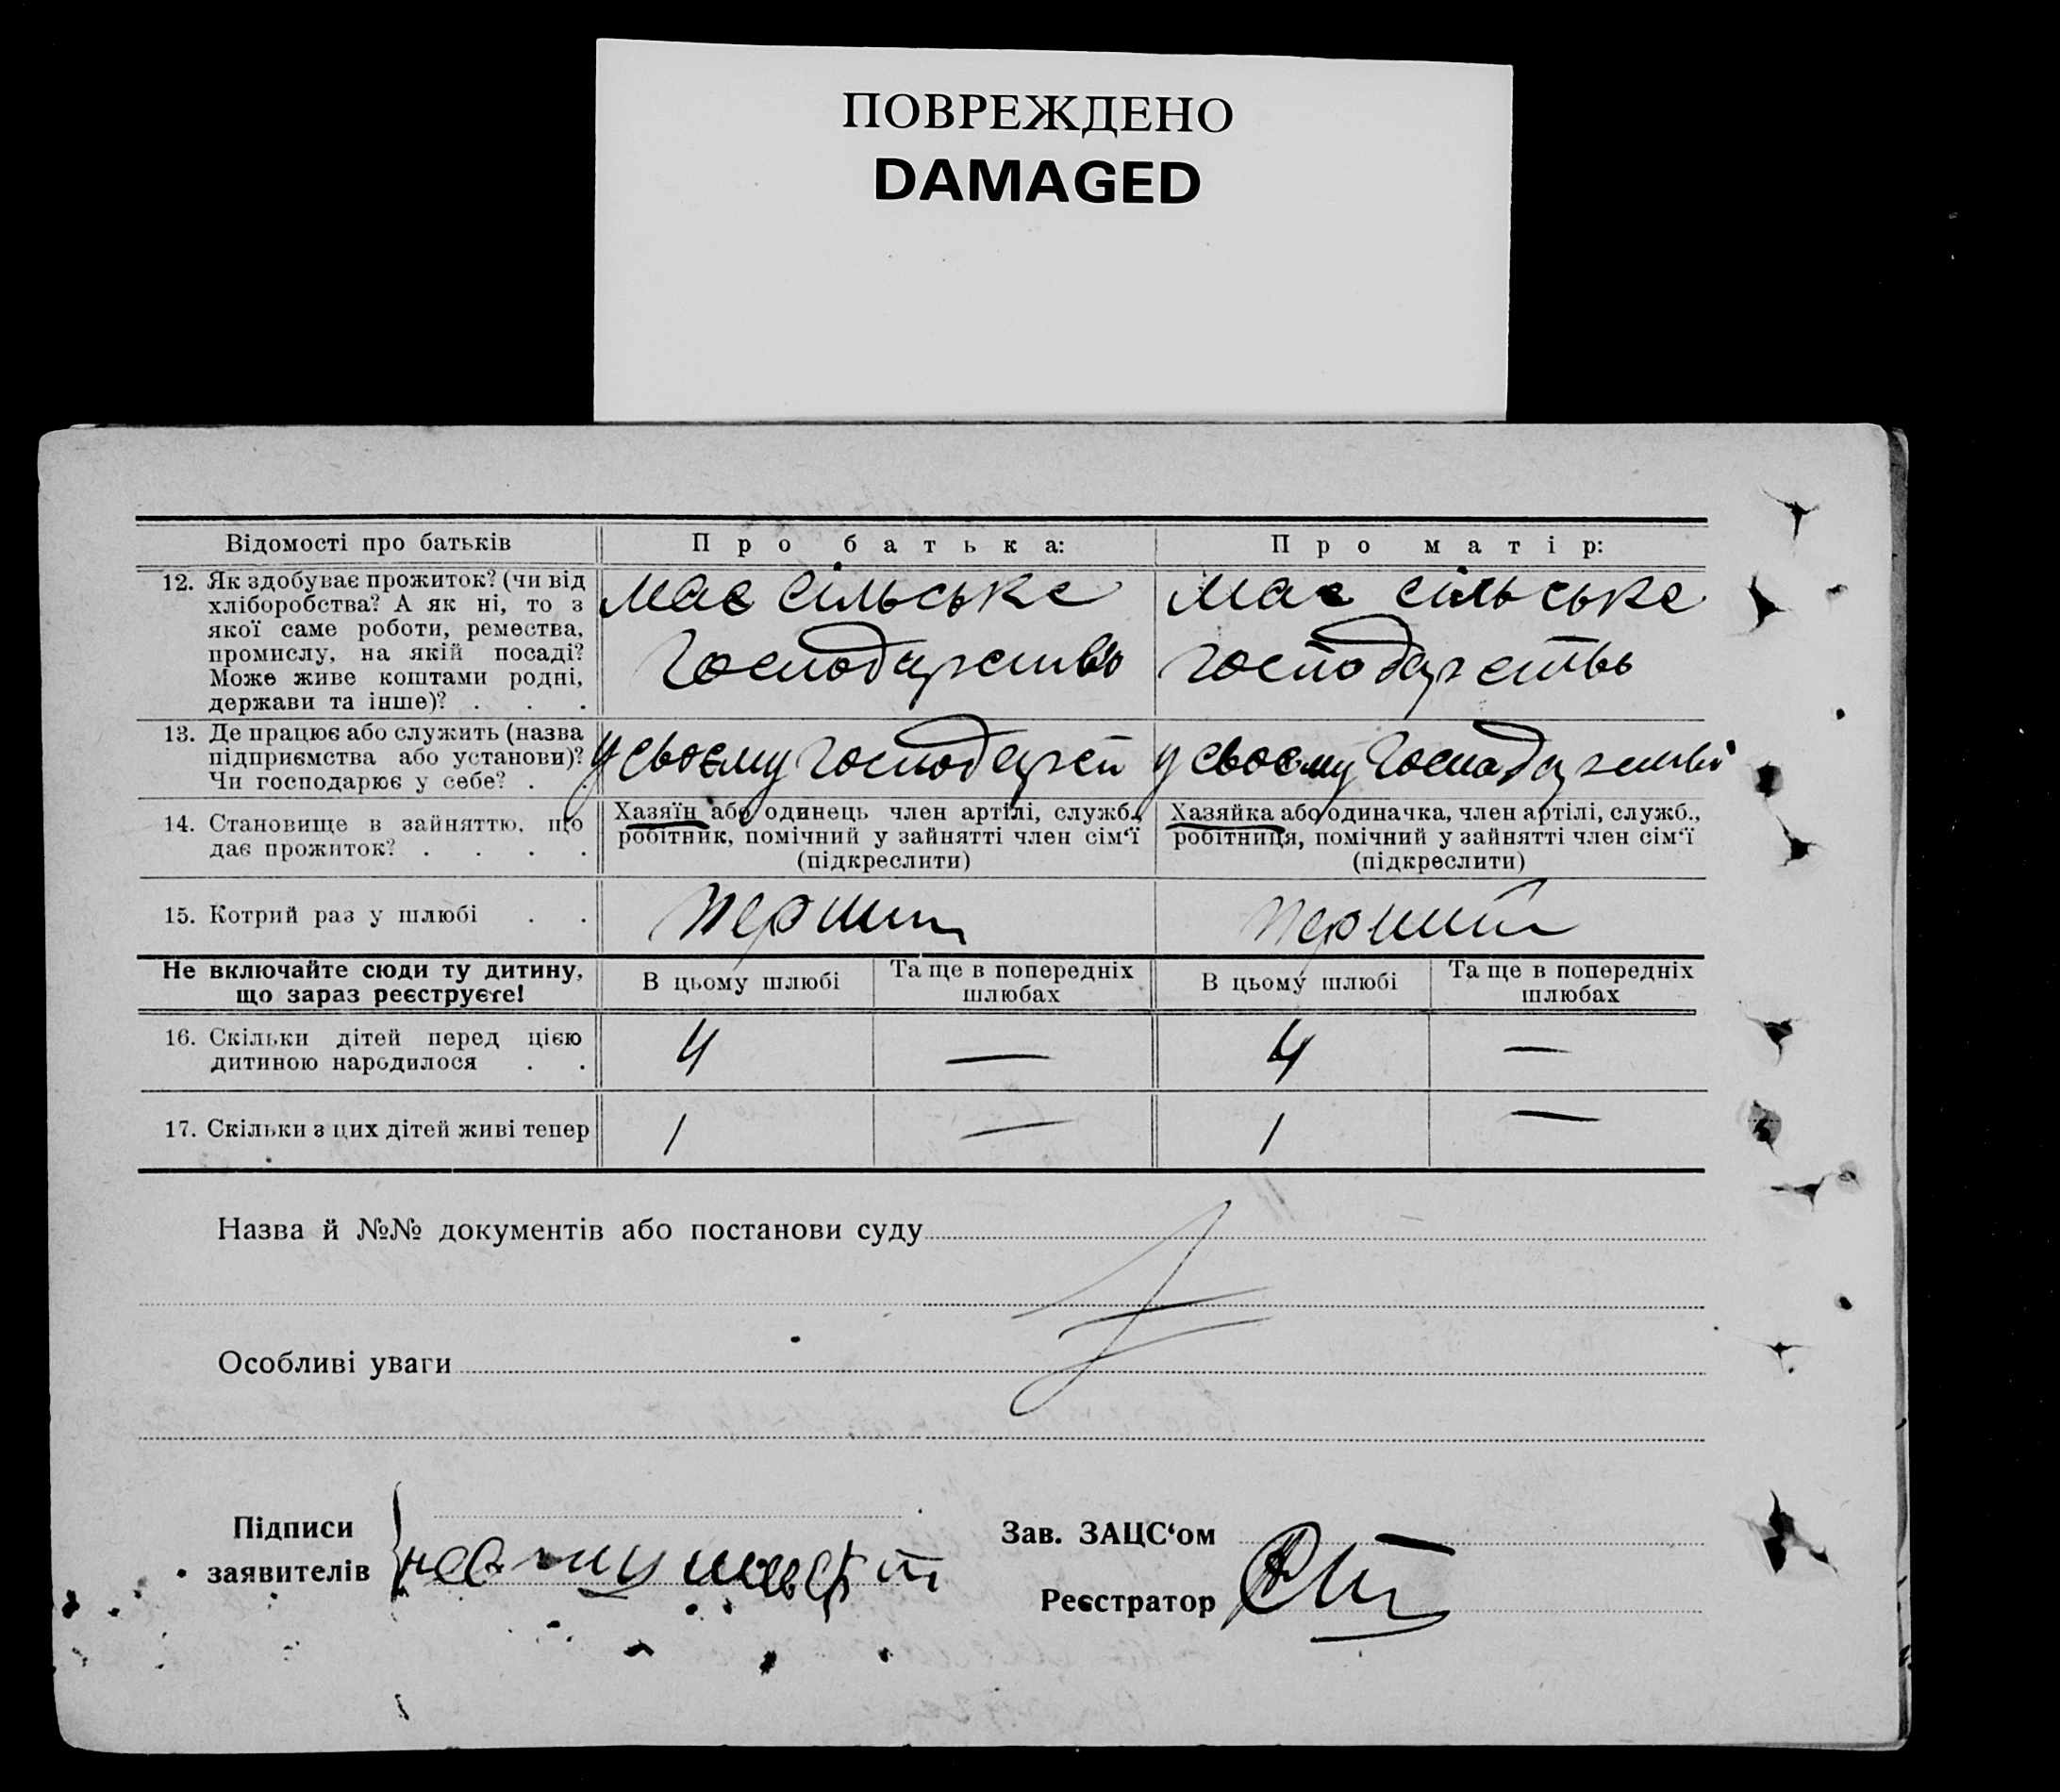 ПОВРЕЖДЕНО
DAMAGED
Відомості про батьків
Про батька:
Про матір:
12. Як здобуває прожиток? (чи від
хліборобства? А як ні, то з
якої саме роботи, ремества,
промислу, на якій посаді?
Може живе коштами родні,
держави та інше)? . . .
має сільське
господарство
має сільське
господарство
13. Де працює або служить (назва
підприємства або установи)?
Чи господарює у себе? . .
у своєму
у своєму господарстві
14. Становище в зайняттю, що
дає прожиток? . . . .
Хазяїн або одинець член артілі, служб.,
робітник, помічний у зайнятті член сім‘ї
(підкреслити)
Хазяйка або одиначка, член артілі, служб.,
робітниця, помічний у зайнятті член сім‘ї
(підкреслити)
15. Котрий раз у шлюбі . .
перший
перший
Не включайте сюди ту дитину,
що зараз реєструєте!
В цьому шлюбі
Та ще в попередніх
шлюбах
В цьому шлюбі
Та ще в попередніх
шлюбах
16. Скільки дітей перед цією
дитиною народилося . .
4
—
4
—
17. Скільки з цих дітей живі тепер
1
—
1
—
Назва й №№ документів або постанови суду
Особливі уваги
Підписи
заявителів
Зав. ЗАЦС‘ом
Реєстратор